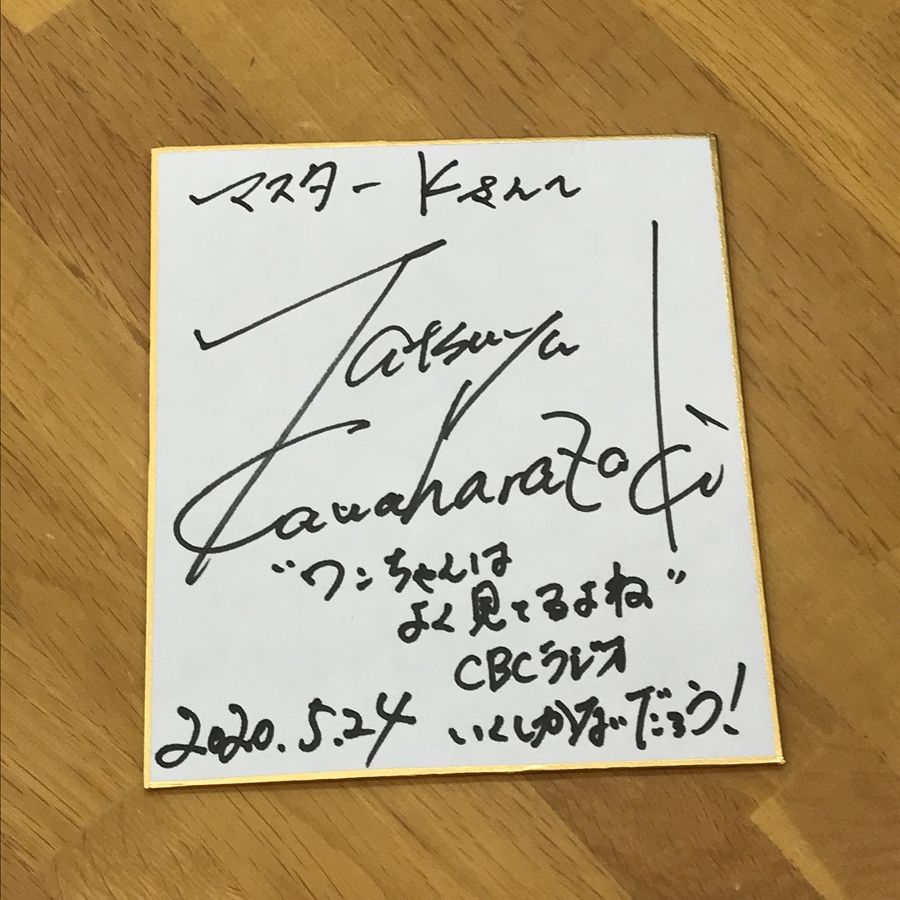 マスター Kさんへ
Tatsuya
Kawaharazaki
"ワンちゃんは
よく見てるよね"
CBCラジオ
いくしかないだろう!
2020.5.24